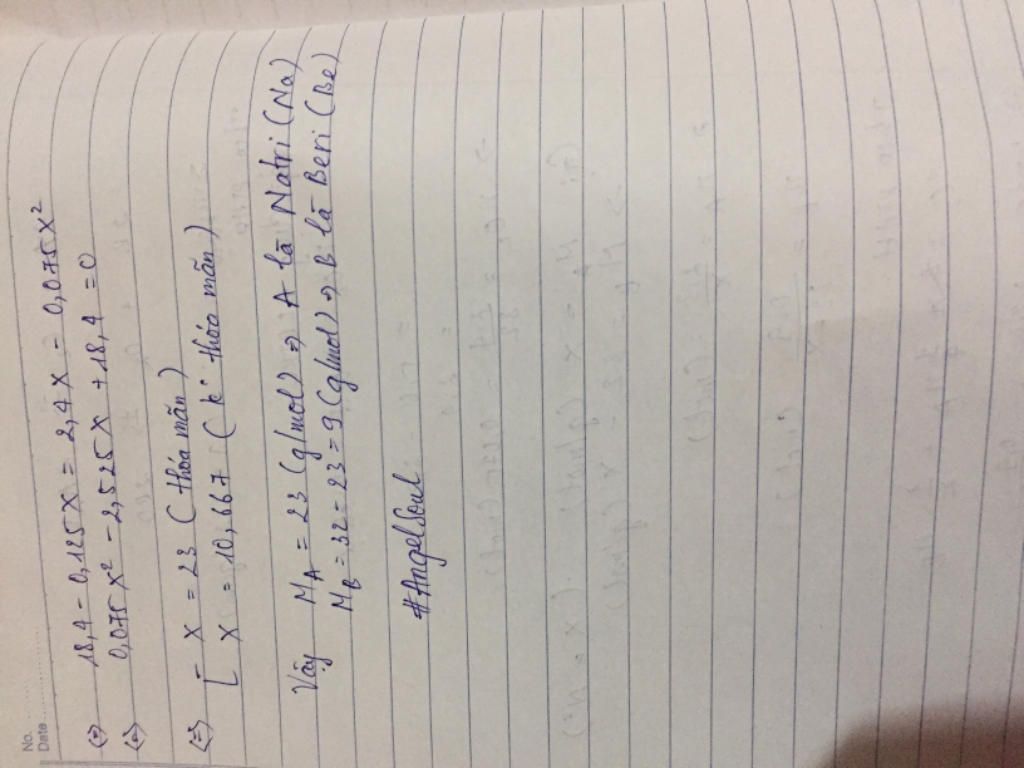 No.
Date
(=) 18,4 - 0,125x = 2,4x - 0,075x²
(=) 0,075x² - 2,525x + 18,4 = 0
(=) [ x = 23 ( thỏa mãn )
x = 10,667 ( k° thỏa mãn )
Vậy M_A = 23 (g/mol) => A là Natri (Na)
M_B = 32 - 23 = 9 (g/mol) => B là Beri (Be)
#AngelSoul